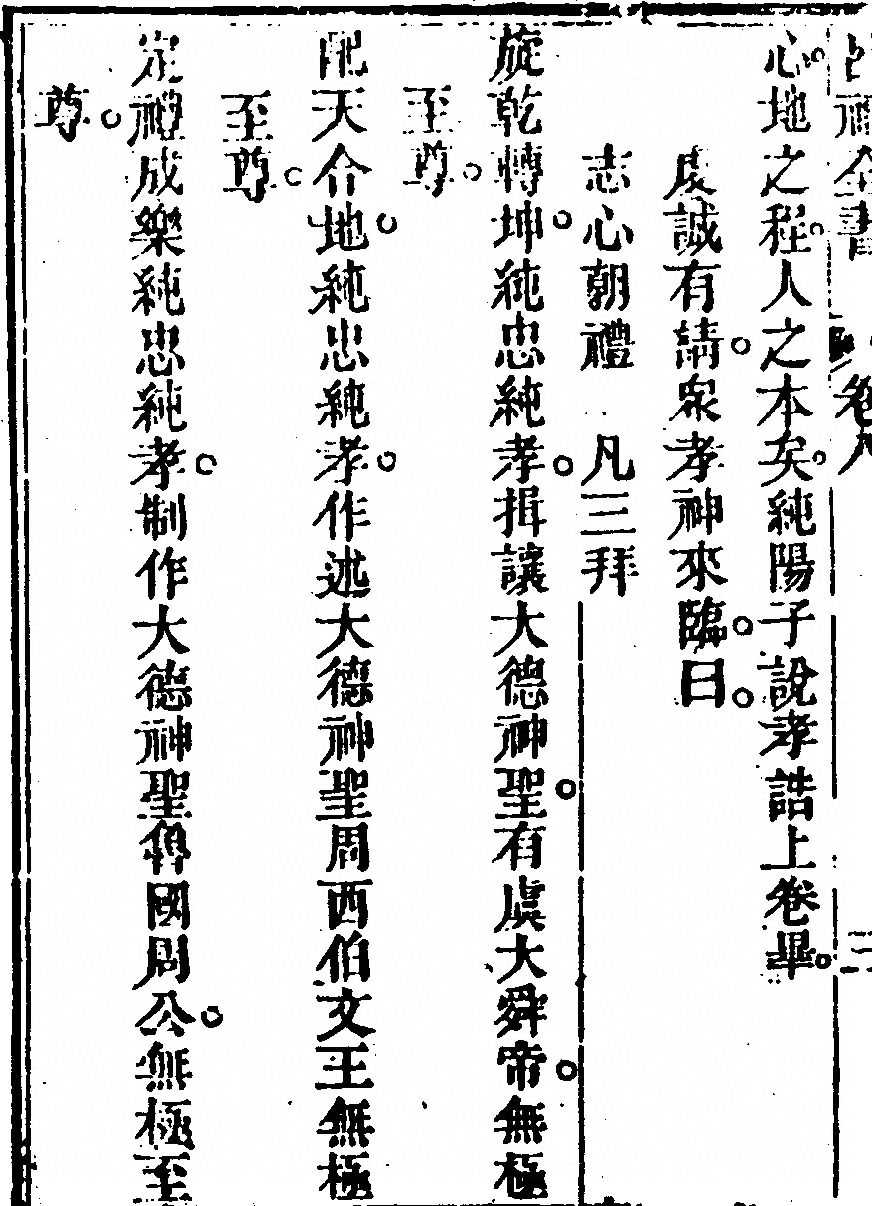 呂祖全書 卷八 二
心地之程人之本矣純陽子說孝誥上卷畢
虔誠有請衆孝神來臨曰
志心朝禮 凡三拜
旋乾轉坤純忠純孝揖讓大德神聖有虞大舜帝無極
至尊
配天合地純忠純孝作述大德神聖周西伯文王無極
至尊
定禮成樂純忠純孝制作大德神聖魯國周公無極至
尊